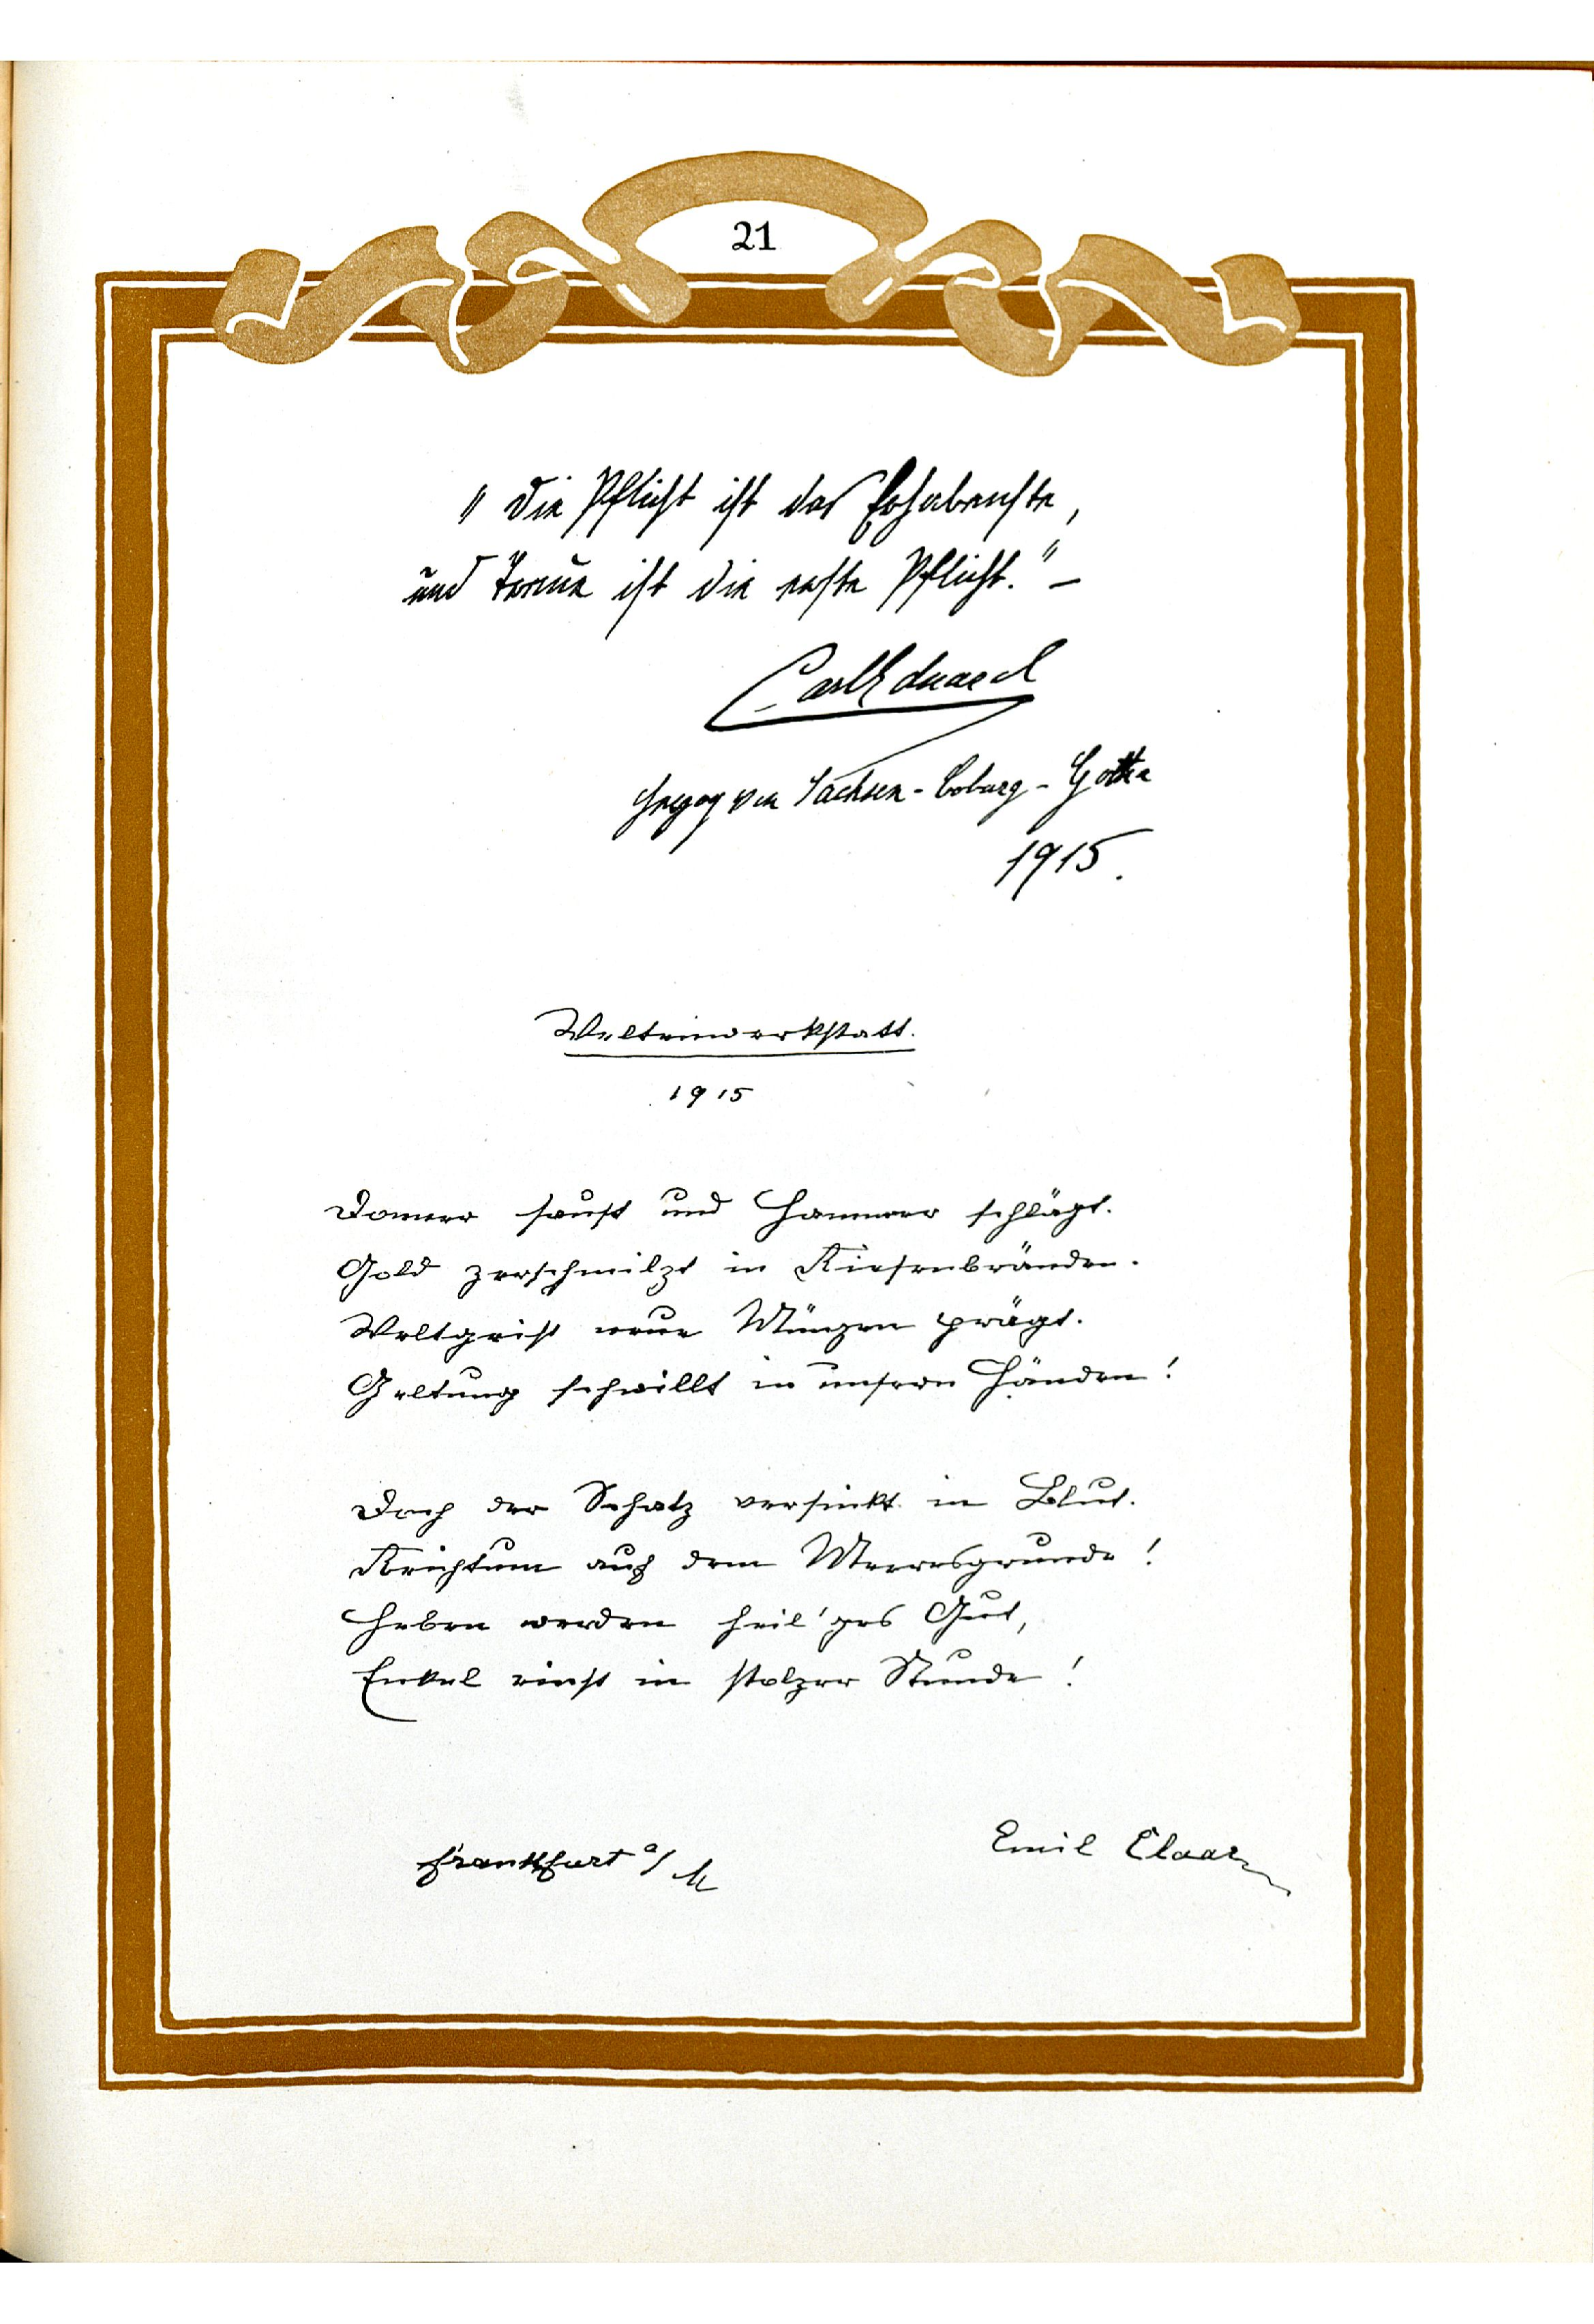 21
"Die Pflicht ist das Erhabenste,
und Treue ist die erste Pflicht." –
Carl Eduard
Herzog von Sachsen-Coburg-Gotha
1915.
Weltenwerkstatt.
1915
Donner saust und Hammer schlägt.
Gold zerschmilzt in Riesenbränden.
Weltgeist neue Münzen prägt.
Geltung schwillt in unsern Händen!
Doch der Schatz versinkt in Blut.
Reichtum auf dem Meeresgrunde!
Heben werden heil'ges Gut,
Enkel einst in stolzer Stunde!
Frankfurt a/M
Emil Claar